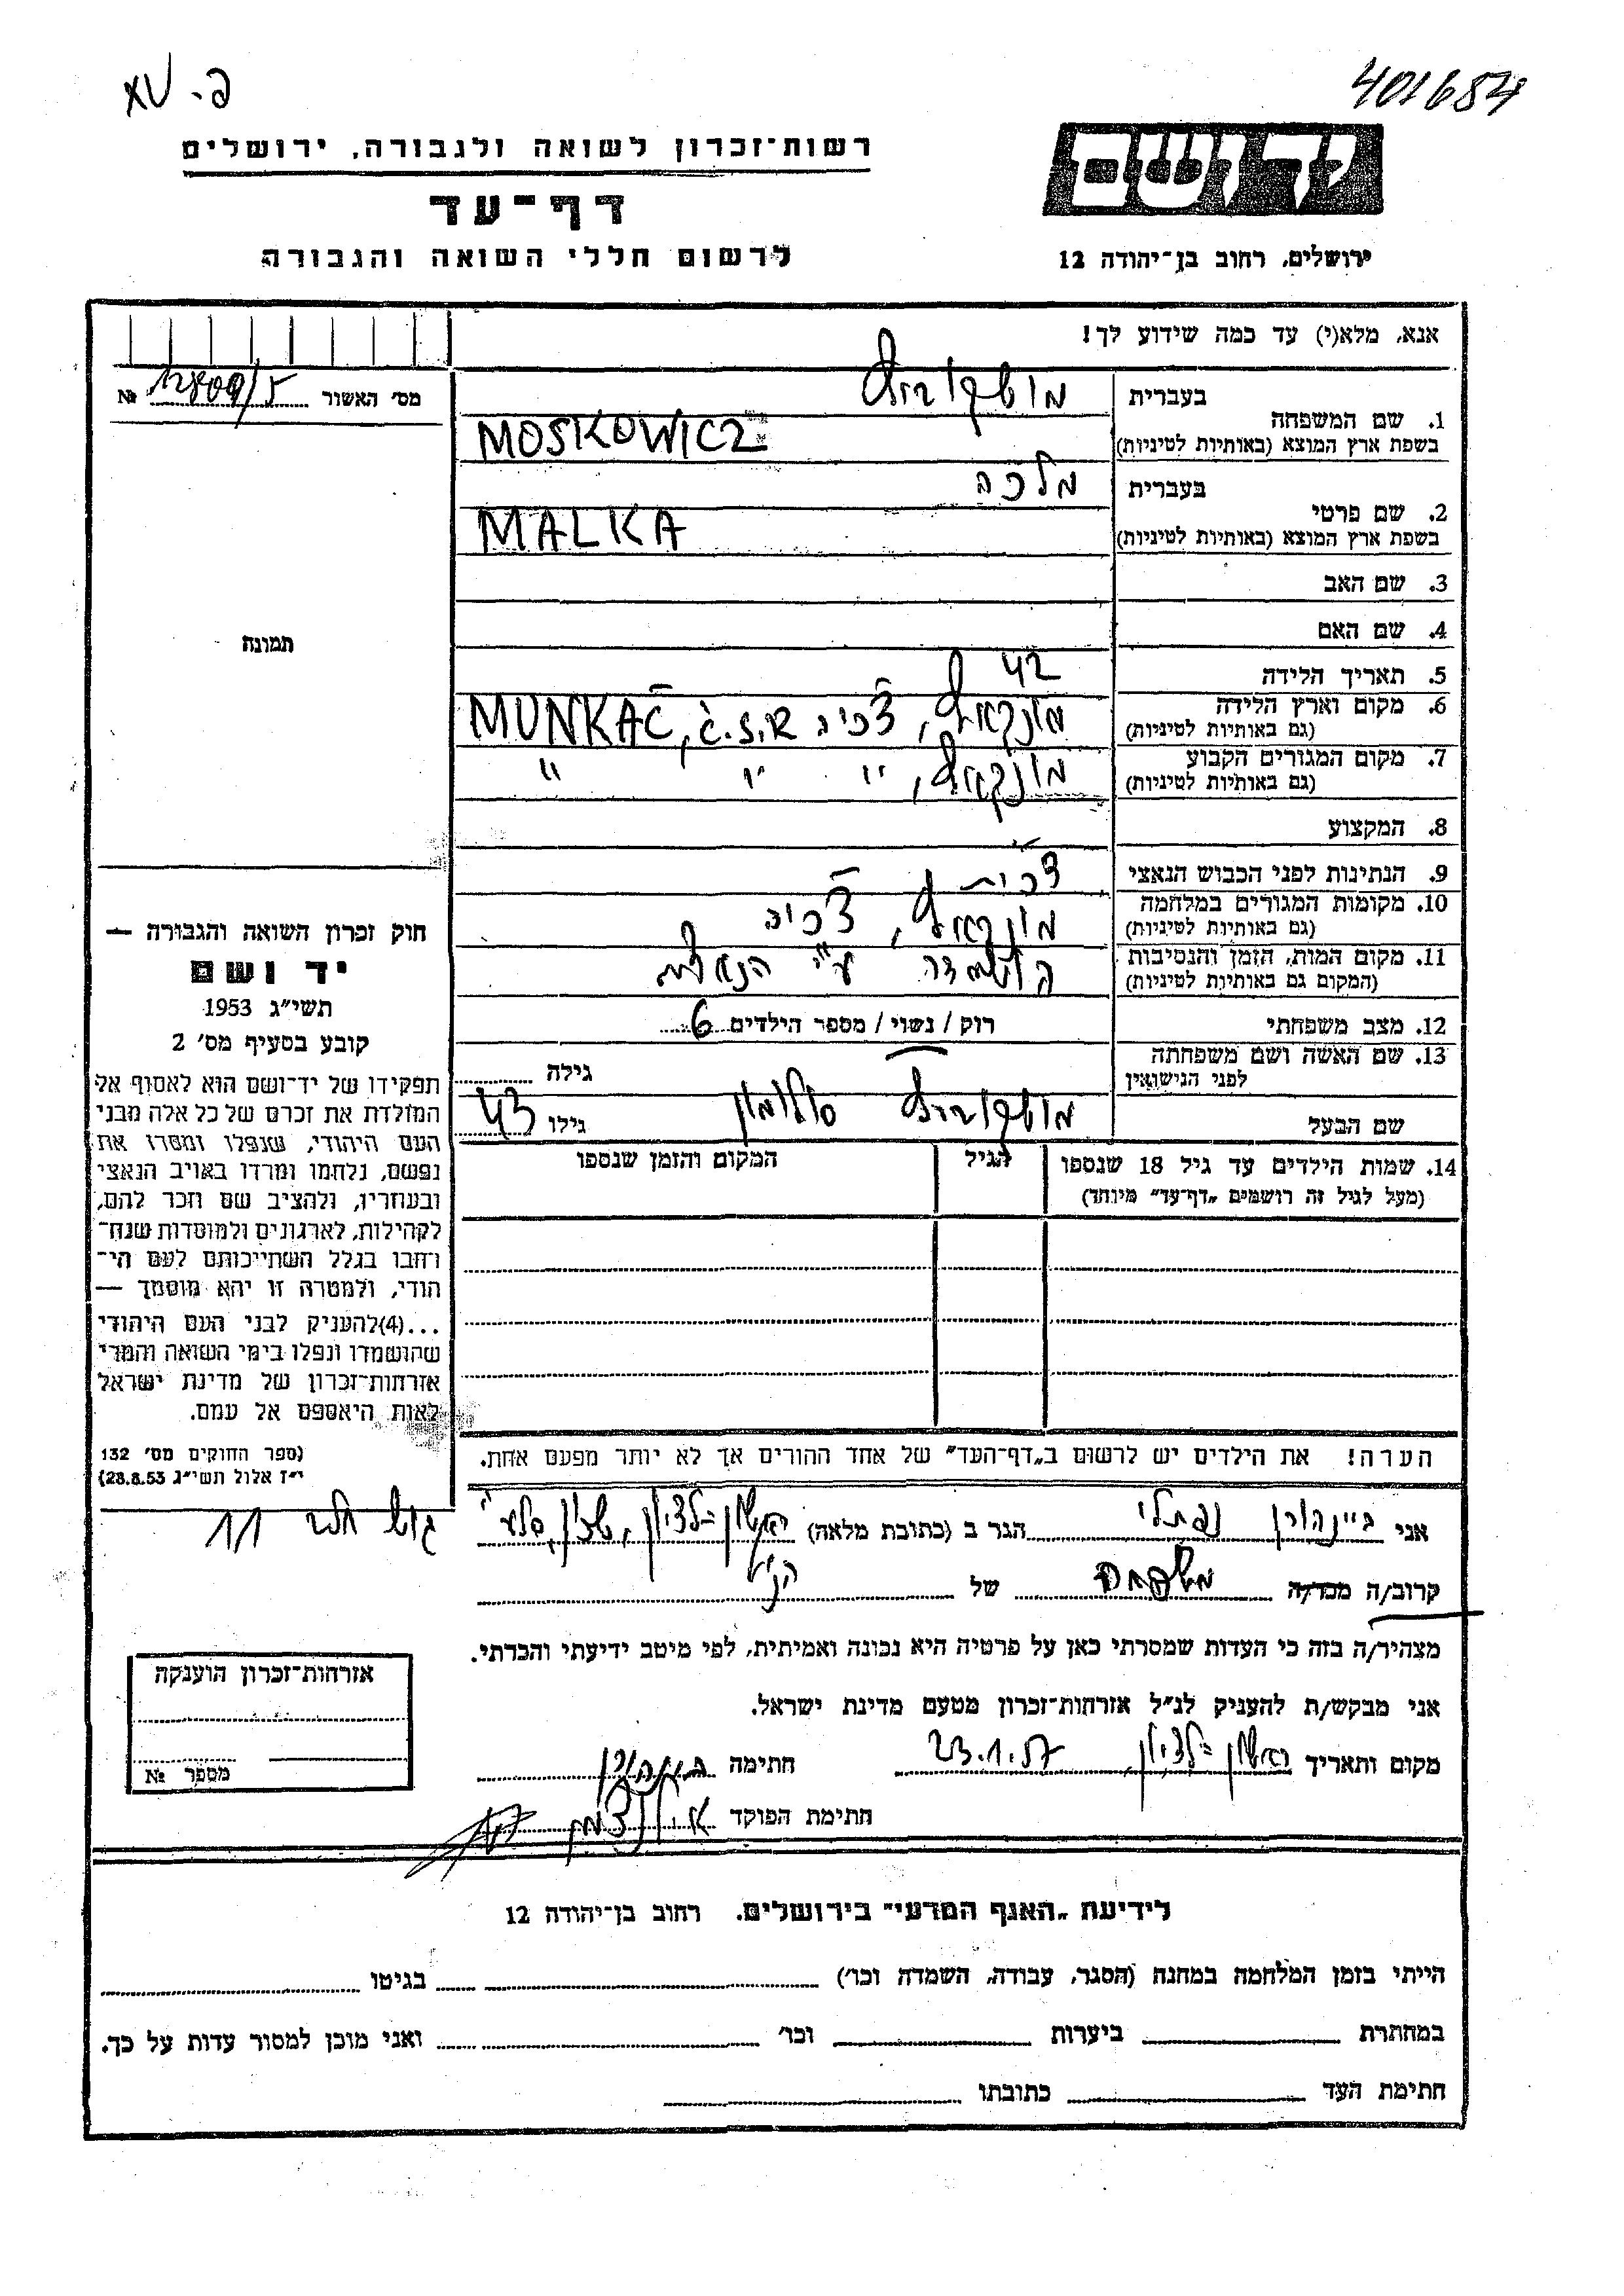 פ- XV
401684
רשות־זכרון לשואה ולגבורה, ירושלים
דף־עד
לרשום חללי השואה והגבורה
יד ושם
ירושלים, רחוב בן־יהודה 12
אנא, מלא(י) עד כמה שידוע לך!
מס׳ האשור № 12809/5
תמונה
1. שם המשפחה
בעברית מושקוביץ
בשפת ארץ המוצא (באותיות לטיניות) MOSKOWICZ
2. שם פרטי
בעברית מלכה
בשפת ארץ המוצא (באותיות לטיניות) MALKA
3. שם האב
4. שם האם
5. תאריך הלידה 42
6. מקום וארץ הלידה מונקאץ, צ׳כיה MUNKAČ, Č.S.R
(גם באותיות לטיניות)
7. מקום המגורים הקבוע מונקאץ, " " "
(גם באותיות לטיניות)
8. המקצוע
9. הנתינות לפני הכבוש הנאצי צ׳כית
10. מקומות המגורים במלחמה מונקאץ, צ׳כיה
(גם באותיות לטיניות)
11. מקום המות, הזמן והנסיבות הושמדה ע״י הנאצים
(המקום גם באותיות לטיניות)
12. מצב משפחתי רוק / נשוי / מספר הילדים 6
13. שם האשה ושם משפחתה
לפני הנישואין גילה
שם הבעל מושקוביץ סולומון גילו 43
14. שמות הילדים עד גיל 18 שנספו הגיל המקום והזמן שנספו
(מעל לגיל זה רושמים „דף־עד״ מיוחד)
הערה! את הילדים יש לרשום ב„דף־העד״ של אחד ההורים אך לא יותר מפעם אחת.
חוק זכרון השואה והגבורה —
יד ושם
תשי״ג 1953
קובע בסעיף מס׳ 2
תפקידו של יד־ושם הוא לאסוף אל
המולדת את זכרם של כל אלה מבני
העם היהודי, שנפלו ומסרו את
נפשם, נלחמו ומרדו באויב הנאצי
ובעוזריו, ולהציב שם וזכר להם,
לקהילות, לארגונים ולמוסדות שנח־
רחבו בגלל השתייכותם לעם הי־
הודי, ולמטרה זו יהא מוסמך —
...(4)להעניק לבני העם היהודי
שהושמדו ונפלו בימי השואה והמרי
אזרחות־זכרון של מדינת ישראל
לאות היאספם אל עמם.
(ספר החוקים מס׳ 132
י״ז אלול תשי״ג 28.8.53)
אני ביינהורן נפתלי הגר ב (כתובת מלאה) ראשון־לציון, שכון
קרוב/ה מכר/ה משפחה של הנ״ל
מצהיר/ה בזה כי העדות שמסרתי כאן על פרטיה היא נכונה ואמיתית, לפי מיטב ידיעתי והכרתי.
אני מבקש/ת להעניק לנ״ל אזרחות־זכרון מטעם מדינת ישראל.
מקום ותאריך ראשון־לציון, 23.1.57 חתימה
חתימת הפוקד
אזרחות־זכרון הוענקה
מספר №
לידיעת „האגף המדעי״ בירושלים. רחוב בן־יהודה 12
הייתי בזמן המלחמה במחנה (הסגר, עבודה, השמדה וכו׳) בגיטו
במחתרת ביערות וכו׳ ואני מוכן למסור עדות על כך.
חתימת העד כתובתו